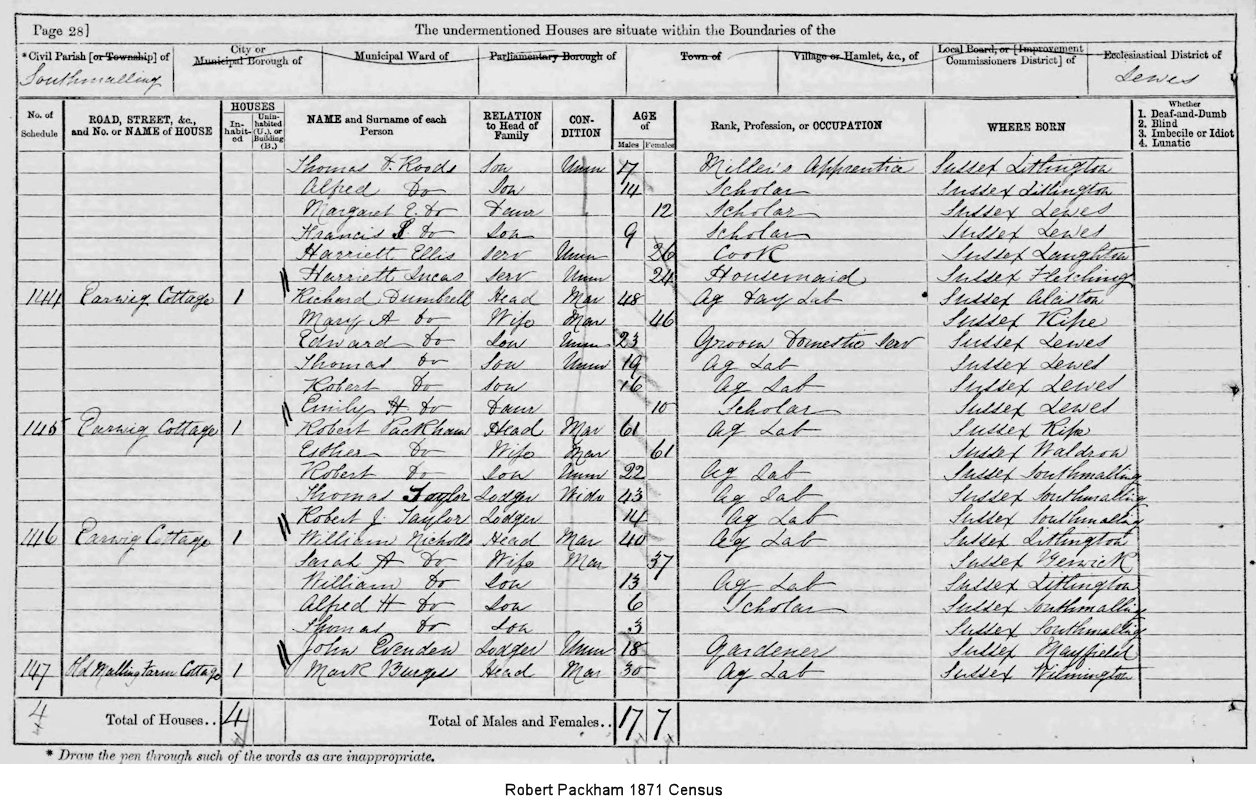 Page 28]
The undermentioned Houses are situate within the Boundaries of the
*Civil Parish [or Township] of City or Municipal Borough of Municipal Ward of Parliamentary Borough of Town of Village or Hamlet, &c., of Local Board, or [Improvement Commissioners District] of Ecclesiastical District of
Southmalling Lewes
No. of Schedule ROAD, STREET, &c., and No. or NAME of HOUSE HOUSES Inhabited Uninhabited (U.), or Building (B.) NAME and Surname of each Person RELATION to Head of Family CONDITION AGE of Males Females Rank, Profession, or OCCUPATION WHERE BORN Whether 1. Deaf-and-Dumb 2. Blind 3. Imbecile or Idiot 4. Lunatic
Thomas Son Unm 17 Miller's Apprentice Sussex Litlington
Alfred Do Son 14 Scholar Sussex Litlington
Margaret E. Do Daur 12 Scholar Sussex Lewes
Francis Do Son 9 Scholar Sussex Lewes
Harriett Ellis Serv Unm 26 Cook Sussex Laughton
Harriett Lucas Serv Unm 24 Housemaid Sussex Fletching
144 Earwig Cottage 1 Richard Dumbrell Head Mar 48 Ag Day Lab Sussex
Mary A Do Wife Mar 46 Sussex Ripe
Edward Do Son Unm 23 Groom Domestic Serv Sussex Lewes
Thomas Do Son Unm 19 Ag Lab Sussex Lewes
Robert Do Son 16 Ag Lab Sussex Lewes
Emily H Do Daur 10 Scholar Sussex Lewes
145 Earwig Cottage 1 Robert Packham Head Mar 61 Ag Lab Sussex Ripe
Esther Do Wife Mar 61 Sussex Waldron
Robert Do Son Unm 22 Ag Lab Sussex Southmalling
Thomas Taylor Lodger Widr 43 Ag Lab Sussex Southmalling
Robert J. Taylor Lodger 14 Ag Lab Sussex Southmalling
146 Earwig Cottage 1 William Nicholls Head Mar 40 Ag Lab Sussex Litlington
Sarah A Do Wife Mar 37 Sussex
William Do Son 13 Ag Lab Sussex Litlington
Alfred H Do Son 6 Scholar Sussex Southmalling
Thomas Do Son 3 Sussex Southmalling
John Evenden Lodger Unm 18 Gardener Sussex Mayfield
147 Old Malling Farm Cottage 1 Mark Burges Head Mar 30 Ag Lab Sussex Wilmington
4 Total of Houses.. 4 Total of Males and Females.. 17 7
* Draw the pen through such of the words as are inappropriate.
Robert Packham 1871 Census